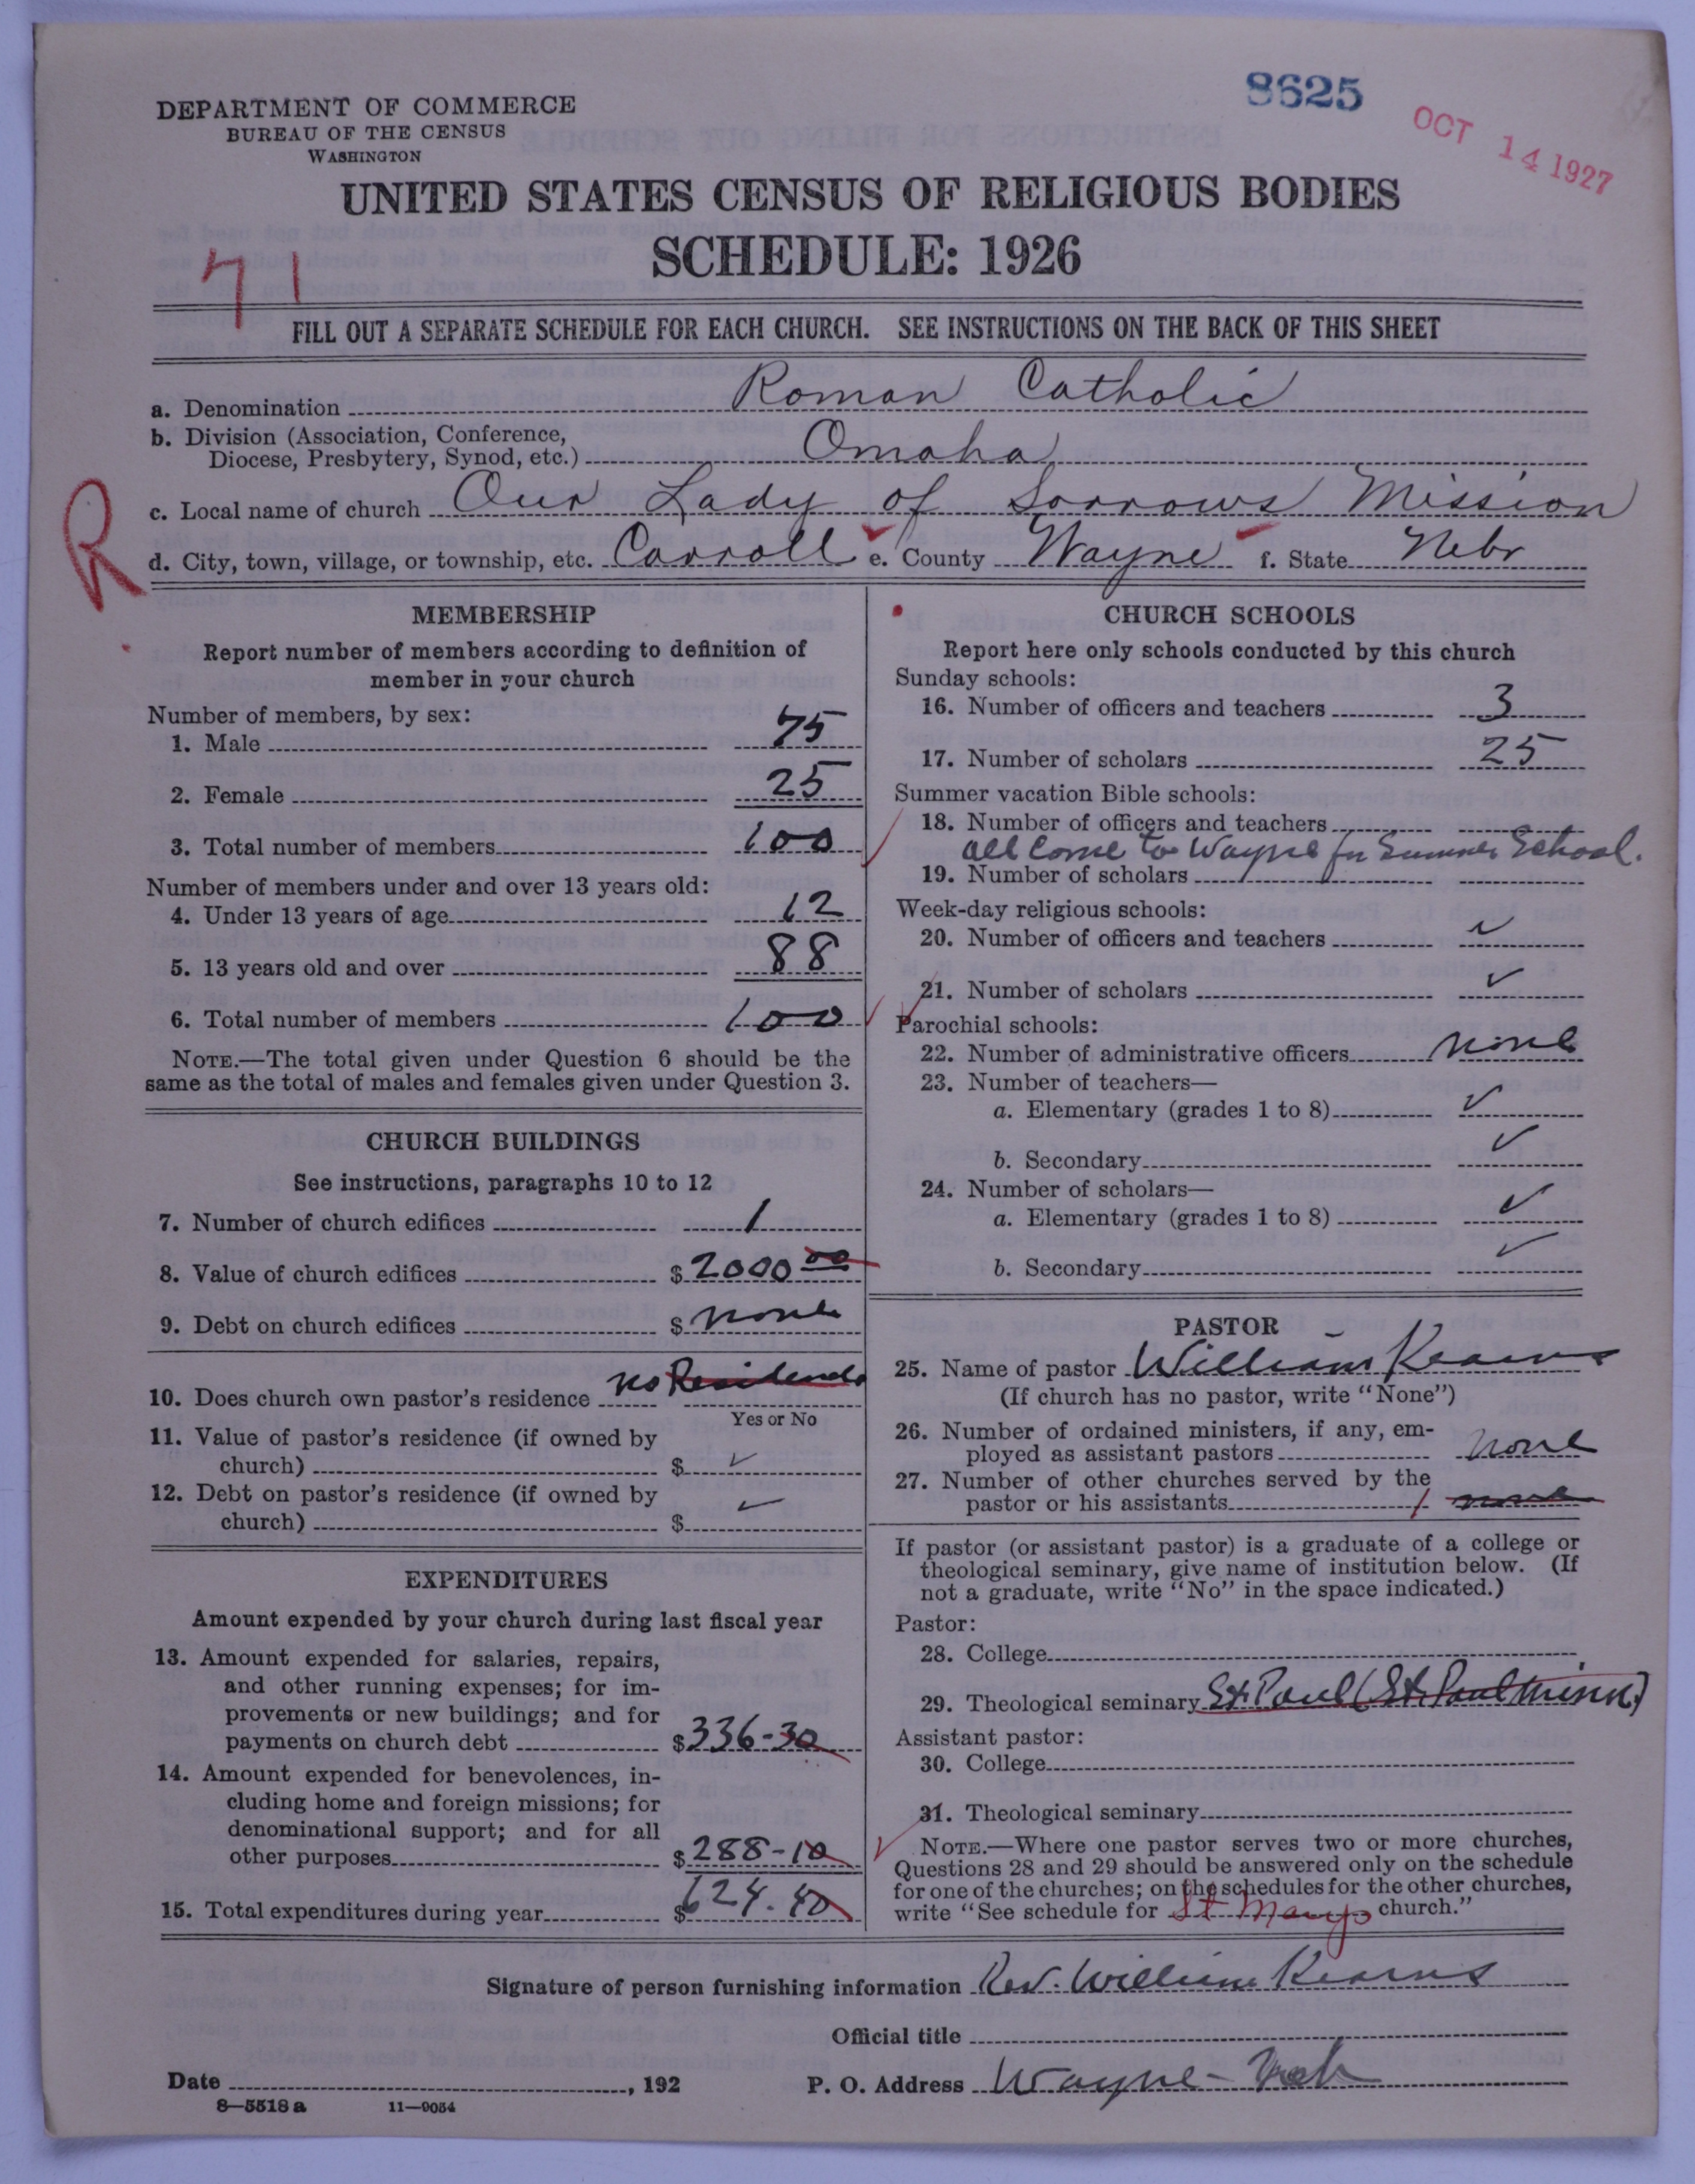 8625
OCT 14 1927
DEPARTMENT OF COMMERCE
BUREAU OF THE CENSUS
WASHINGTON
UNITED STATES CENSUS OF RELIGIOUS BODIES
SCHEDULE: 1926
71
FILL OUT A SEPARATE SCHEDULE FOR EACH CHURCH. SEE INSTRUCTIONS ON THE BACK OF THIS SHEET
a. Denomination Roman Catholic
b. Division (Association, Conference,
Diocese, Presbytery, Synod, etc.) Omaha
c. Local name of church Our Lady of Sorrows Mission
R
d. City, town, village, or township, etc. Carroll e. County Wayne f. State Nebr
MEMBERSHIP
Report number of members according to definition of
member in your church
Number of members, by sex:
1. Male 75
2. Female 25
3. Total number of members 100
Number of members under and over 13 years old:
4. Under 13 years of age 12
5. 13 years old and over 88
6. Total number of members 100
NOTE.—The total given under Question 6 should be the
same as the total of males and females given under Question 3.
CHURCH BUILDINGS
See instructions, paragraphs 10 to 12
7. Number of church edifices 1
8. Value of church edifices $ 2000 00
9. Debt on church edifices $ none
10. Does church own pastor's residence no Residence
Yes or No
11. Value of pastor's residence (if owned by
church) $ ✓
12. Debt on pastor's residence (if owned by
church) $ ✓
EXPENDITURES
Amount expended by your church during last fiscal year
13. Amount expended for salaries, repairs,
and other running expenses; for im-
provements or new buildings; and for
payments on church debt $ 336-30
14. Amount expended for benevolences, in-
cluding home and foreign missions; for
denominational support; and for all
other purposes $ 288-10
15. Total expenditures during year $ 624.40
CHURCH SCHOOLS
Report here only schools conducted by this church
Sunday schools:
16. Number of officers and teachers 3
17. Number of scholars 25
Summer vacation Bible schools:
18. Number of officers and teachers
all come to Wayne for Summer School.
19. Number of scholars
Week-day religious schools:
20. Number of officers and teachers ✓
21. Number of scholars ✓
Parochial schools:
22. Number of administrative officers none
23. Number of teachers—
a. Elementary (grades 1 to 8) ✓
b. Secondary ✓
24. Number of scholars—
a. Elementary (grades 1 to 8) ✓
b. Secondary ✓
PASTOR
25. Name of pastor William Kearns
(If church has no pastor, write "None")
26. Number of ordained ministers, if any, em-
ployed as assistant pastors none
27. Number of other churches served by the
pastor or his assistants 1 none
If pastor (or assistant pastor) is a graduate of a college or
theological seminary, give name of institution below. (If
not a graduate, write "No" in the space indicated.)
Pastor:
28. College
29. Theological seminary St. Paul (St. Paul Minn.)
Assistant pastor:
30. College
31. Theological seminary
NOTE.—Where one pastor serves two or more churches,
Questions 28 and 29 should be answered only on the schedule
for one of the churches; on the schedules for the other churches,
write "See schedule for St Marys church."
Signature of person furnishing information Rev. William Kearns
Official title
Date , 192 P. O. Address Wayne - Neb
8—5518 a 11—9054